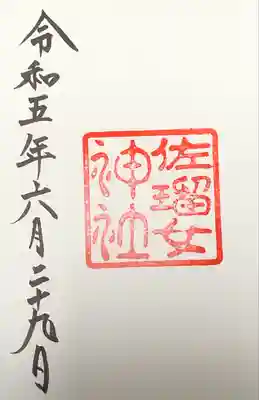 佐瑠女
神社
令和五年六月二十九日